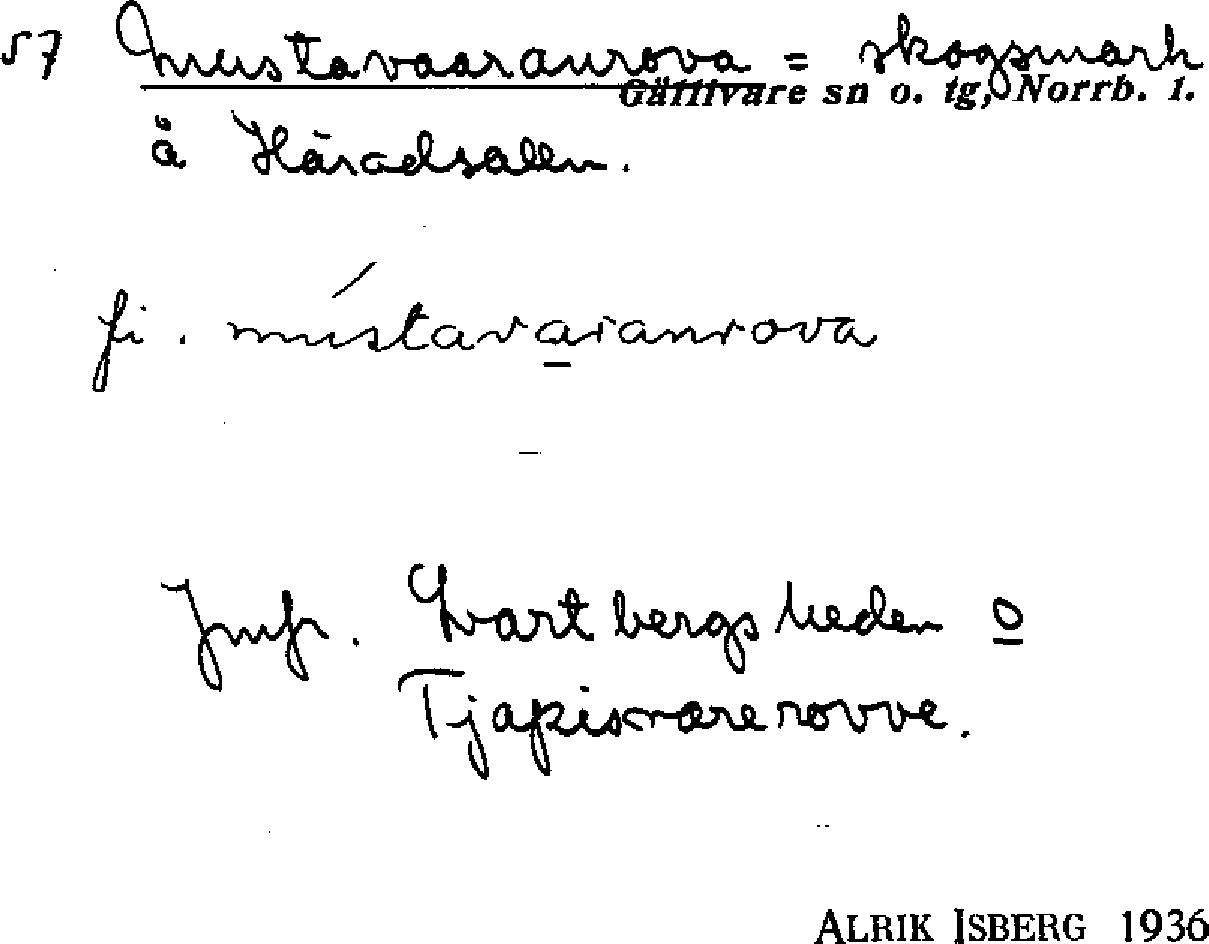 57 Mustavaaranrova = skogsmark
Gällivare sn o. tg, Norrb. l.
å Häradsallm.
fi. mústavaranrova
Jmfr. Svartbergsheden o
Tjapisvarerovve.
ALRIK ISBERG 1936